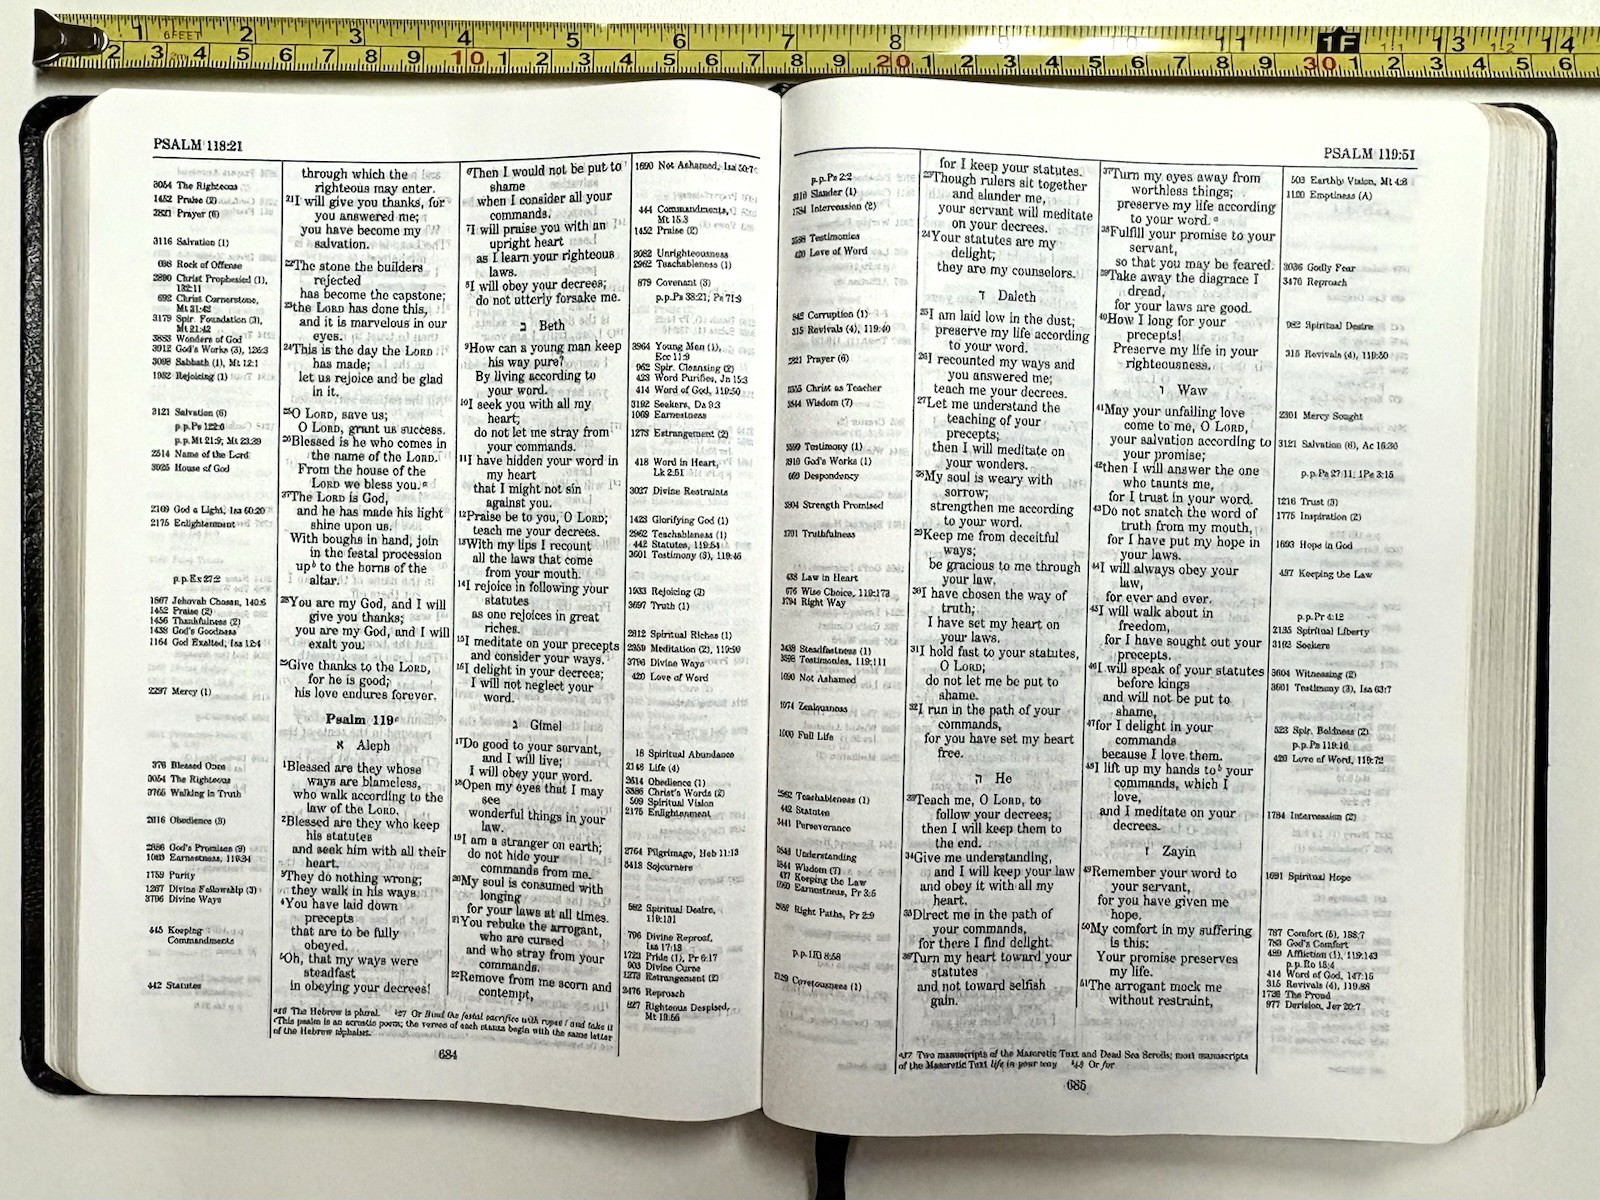 1 2 3 4 5 6 7 8 11 1F 13 14
6FEET
2 3 4 5 6 7 8 9 10 1 2 3 4 5 6 7 8 9 20 1 2 3 4 5 6 7 8 9 30 1 2 3 4 5 6
PSALM 118:21
3054 The Righteous
1452 Praise (2)
2821 Prayer (6)
3116 Salvation (1)
Rock of Offense
2890 Christ Prophesied (1),
132:11
692 Christ Cornerstone,
Mt 21:42
3179 Spir. Foundation (3),
Mt 21:42
Wonders of God
3912 God's Works (3), 126:3
3098 Sabbath (1), Mt 12:1
1982 Rejoicing (1)
3121 Salvation (6)
p.p.Ps 122:6
p.p.Mt 21:9; Mt 23:39
2514 Name of the Lord
3025 House of God
2169 God a Light, Isa 60:20
2175 Enlightenment
p.p.Ex 27:2
1867 Jehovah Chosen, 140:6
1452 Praise (2)
1456 Thankfulness (2)
1438 God's Goodness
1164 God Exalted, Isa 12:4
2297 Mercy (1)
376 Blessed Ones
3054 The Righteous
3765 Walking in Truth
2616 Obedience (3)
2886 God's Promises (9)
Earnestness, 119:34
1759 Purity
1267 Divine Fellowship (3)
3796 Divine Ways
445 Keeping
Commandments
442 Statutes
through which the
righteous may enter.
21I will give you thanks, for
you answered me;
you have become my
salvation.
22The stone the builders
rejected
has become the capstone;
23the LORD has done this,
and it is marvelous in our
eyes.
24This is the day the LORD
has made;
let us rejoice and be glad
in it.
25O LORD, save us;
O LORD, grant us success.
26Blessed is he who comes in
the name of the LORD.
From the house of the
LORD we bless you.a
27The LORD is God,
and he has made his light
shine upon us.
With boughs in hand, join
in the festal procession
upb to the horns of the
altar.
28You are my God, and I will
give you thanks;
you are my God, and I will
exalt you.
29Give thanks to the LORD,
for he is good;
his love endures forever.
Psalm 119c
א Aleph
1Blessed are they whose
ways are blameless,
who walk according to the
law of the LORD.
2Blessed are they who keep
his statutes
and seek him with all their
heart.
3They do nothing wrong;
they walk in his ways.
4You have laid down
precepts
that are to be fully
obeyed.
5Oh, that my ways were
steadfast
in obeying your decrees!
6Then I would not be put to
shame
when I consider all your
commands.
7I will praise you with an
upright heart
as I learn your righteous
laws.
8I will obey your decrees;
do not utterly forsake me.
ב Beth
9How can a young man keep
his way pure?
By living according to
your word.
10I seek you with all my
heart;
do not let me stray from
your commands.
11I have hidden your word in
my heart
that I might not sin
against you.
12Praise be to you, O LORD;
teach me your decrees.
13With my lips I recount
all the laws that come
from your mouth.
14I rejoice in following your
statutes
as one rejoices in great
riches.
15I meditate on your precepts
and consider your ways.
16I delight in your decrees;
I will not neglect your
word.
ג Gimel
17Do good to your servant,
and I will live;
I will obey your word.
18Open my eyes that I may
see
wonderful things in your
law.
19I am a stranger on earth;
do not hide your
commands from me.
20My soul is consumed with
longing
for your laws at all times.
21You rebuke the arrogant,
who are cursed
and who stray from your
commands.
22Remove from me scorn and
contempt,
1690 Not Ashamed, Isa 50:7
444 Commandments,
Mt 15:3
1452 Praise (2)
3082 Unrighteousness
2962 Teachableness (1)
879 Covenant (3)
p.p.Ps 38:21; Ps 71:9
3964 Young Men (1),
Ecc 11:9
962 Spir. Cleansing (2)
423 Word Purifies, Jn 15:3
414 Word of God, 119:50
3192 Seekers, Da 9:3
1069 Earnestness
1273 Estrangement (2)
418 Word in Heart,
Lk 2:51
3027 Divine Restraints
1423 Glorifying God (1)
2962 Teachableness (1)
442 Statutes, 119:54
3601 Testimony (3), 119:46
1933 Rejoicing (2)
3697 Truth (1)
2812 Spiritual Riches (1)
2359 Meditation (2), 119:99
3796 Divine Ways
420 Love of Word
16 Spiritual Abundance
2148 Life (4)
2614 Obedience (1)
3886 Christ's Words (2)
509 Spiritual Vision
2175 Enlightenment
2764 Pilgrimage, Heb 11:13
3413 Sojourners
582 Spiritual Desire,
119:131
796 Divine Reproof,
Isa 17:13
1723 Pride (1), Pr 6:17
903 Divine Curse
1273 Estrangement (2)
2476 Reproach
827 Righteous Despised,
Mt 10:56
a26 The Hebrew is plural. b27 Or Bind the festal sacrifice with ropes / and take it
cThis psalm is an acrostic poem; the verses of each stanza begin with the same letter
of the Hebrew alphabet.
684
PSALM 119:51
p.p.Ps 2:2
Slander (1)
1784 Intercession (2)
3598 Testimonies
420 Love of Word
Corruption (1)
315 Revivals (4), 119:40
2821 Prayer (6)
Christ as Teacher
Wisdom (7)
Testimony (1)
God's Works (1)
Despondency
Strength Promised
3701 Truthfulness
438 Law in Heart
676 Wise Choice, 119:173
1794 Right Way
3438 Steadfastness (1)
3598 Testimonies, 119:111
1690 Not Ashamed
1974 Zealousness
Full Life
2962 Teachableness (1)
442 Statutes
3441 Perseverance
Understanding
Wisdom (7)
437 Keeping the Law
Earnestness, Pr 3:5
Right Paths, Pr 2:9
p.p.1Ki 8:58
Covetousness (1)
for I keep your statutes.
23Though rulers sit together
and slander me,
your servant will meditate
on your decrees.
24Your statutes are my
delight;
they are my counselors.
ד Daleth
25I am laid low in the dust;
preserve my life according
to your word.
26I recounted my ways and
you answered me;
teach me your decrees.
27Let me understand the
teaching of your
precepts;
then I will meditate on
your wonders.
28My soul is weary with
sorrow;
strengthen me according
to your word.
29Keep me from deceitful
ways;
be gracious to me through
your law.
30I have chosen the way of
truth;
I have set my heart on
your laws.
31I hold fast to your statutes,
O LORD;
do not let me be put to
shame.
32I run in the path of your
commands,
for you have set my heart
free.
ה He
33Teach me, O LORD, to
follow your decrees;
then I will keep them to
the end.
34Give me understanding,
and I will keep your law
and obey it with all my
heart.
35Direct me in the path of
your commands,
for there I find delight.
36Turn my heart toward your
statutes
and not toward selfish
gain.
37Turn my eyes away from
worthless things;
preserve my life according
to your word.a
38Fulfill your promise to your
servant,
so that you may be feared.
39Take away the disgrace I
dread,
for your laws are good.
40How I long for your
precepts!
Preserve my life in your
righteousness.
ו Waw
41May your unfailing love
come to me, O LORD,
your salvation according to
your promise;
42then I will answer the one
who taunts me,
for I trust in your word.
43Do not snatch the word of
truth from my mouth,
for I have put my hope in
your laws.
44I will always obey your
law,
for ever and ever.
45I will walk about in
freedom,
for I have sought out your
precepts.
46I will speak of your statutes
before kings
and will not be put to
shame,
47for I delight in your
commands
because I love them.
48I lift up my hands tob your
commands, which I
love,
and I meditate on your
decrees.
ז Zayin
49Remember your word to
your servant,
for you have given me
hope.
50My comfort in my suffering
is this:
Your promise preserves
my life.
51The arrogant mock me
without restraint,
503 Earthly Vision, Mt 4:8
1120 Emptiness (A)
3036 Godly Fear
3476 Reproach
982 Spiritual Desire
315 Revivals (4), 119:50
2301 Mercy Sought
3121 Salvation (6), Ac 16:30
p.p.Ps 27:11; 1Pe 3:15
1216 Trust (3)
1775 Inspiration (2)
1693 Hope in God
437 Keeping the Law
p.p.Pr 4:12
2135 Spiritual Liberty
3192 Seekers
3604 Witnessing (2)
3601 Testimony (3), Isa 63:7
523 Spir. Boldness (2)
p.p.Ps 119:16
420 Love of Word, 119:72
1784 Intercession (2)
1691 Spiritual Hope
797 Comfort (5), 138:7
793 God's Comfort
489 Affliction (1), 119:143
p.p.Ro 15:4
414 Word of God, 147:15
315 Revivals (4), 119:88
1726 The Proud
977 Derision, Jer 20:7
a37 Two manuscripts of the Masoretic Text and Dead Sea Scrolls; most manuscripts
of the Masoretic Text life in your way b48 Or for
685